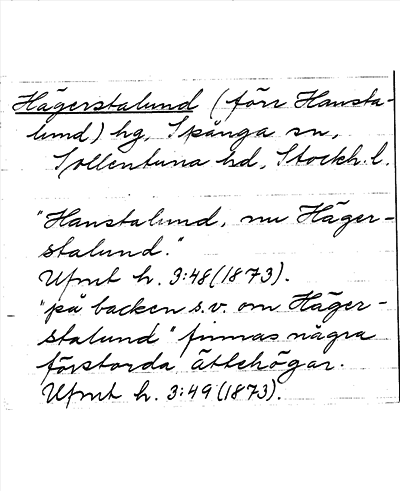 Hägerstalund (förr Hansta-
lund) hg, Spånga sn,
Sollentuna hd, Stockh. l.
"Hanstalund, nu Häger-
stalund."
Ufmt h. 3:48 (1873).
"på backen s.v. om Häger-
stalund" finnas några
förstorda ättehögar.
Ufmt h. 3:49 (1873).